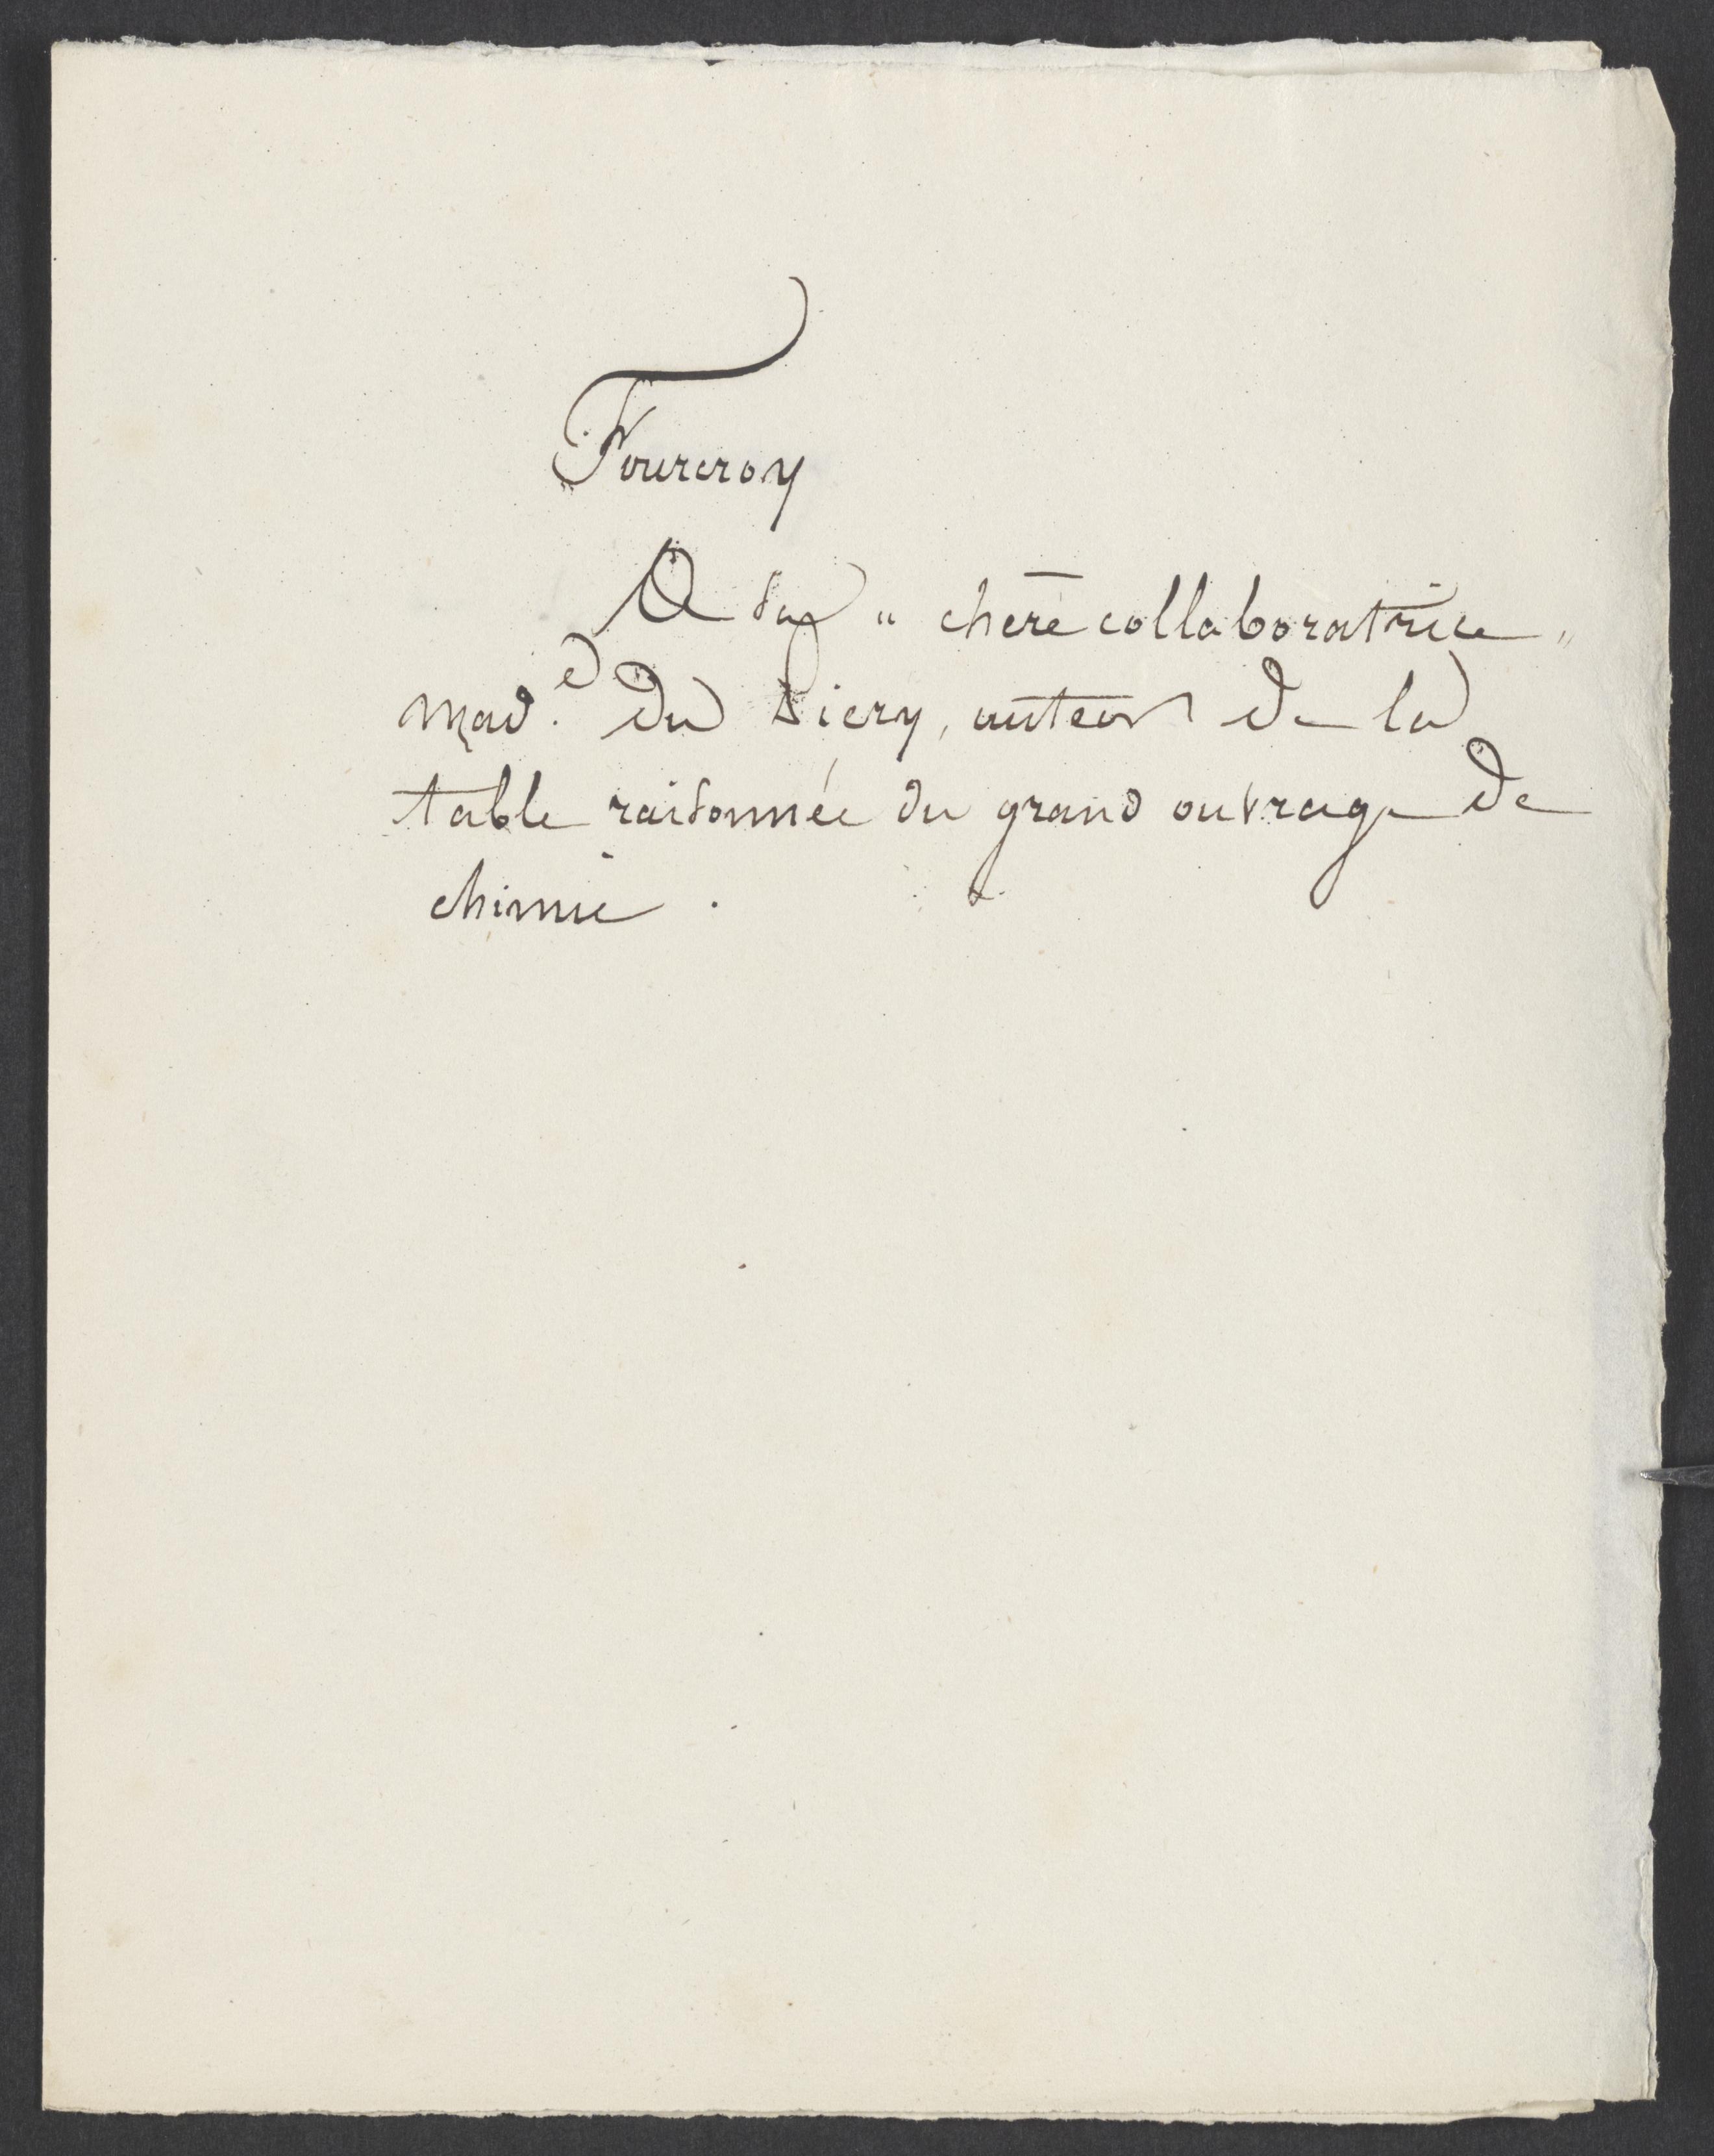 Fourcroy
A sa " chère collaboratrice "
mad.e du Piery, auteur de la
table raisonnée du grand ouvrage de
chimie .